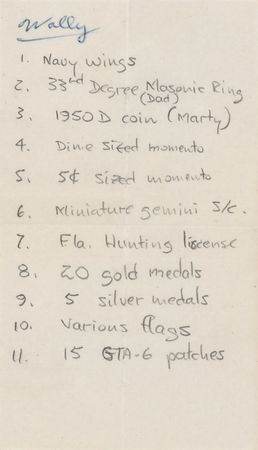 Wally
1. Navy wings
2. 33rd Degree Masonic Ring
(Dad)
3. 1950 D coin (Marty)
4. Dime sized momento
5. 5¢ sized momento
6. Miniature gemini S/c.
7. Fla. Hunting liscense
8. 20 gold medals
9. 5 silver medals
10. Various flags
11. 15 GTA-6 patches